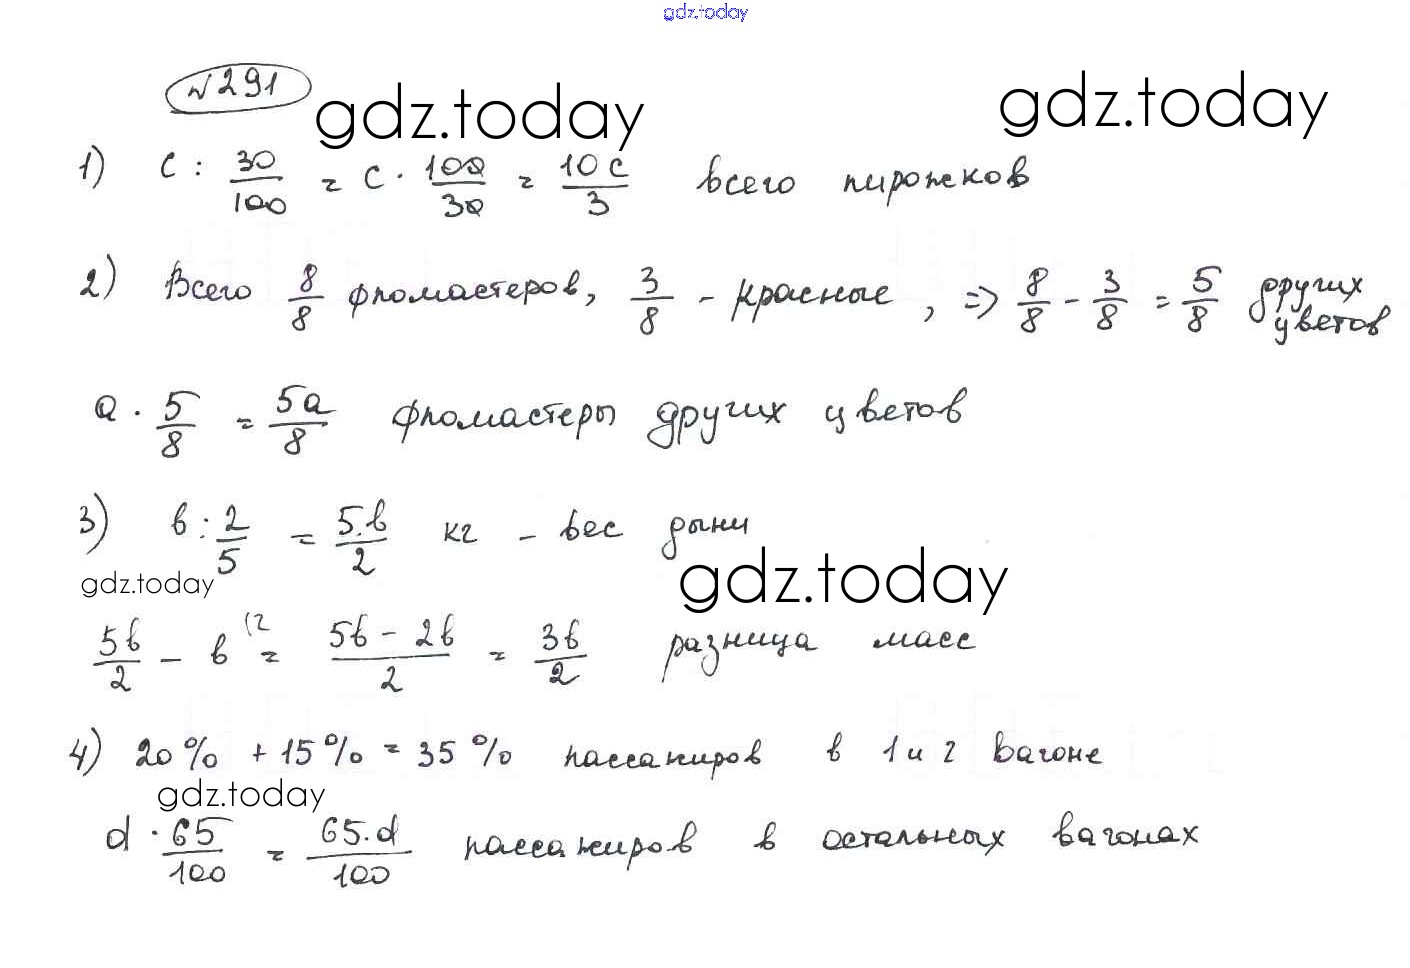 gdz.today
№291
gdz.today gdz.today
1) c : 30/100 = c · 100/30 = 10c/3 всего пирожков
2) Всего 8/8 фломастеров, 3/8 - красные, => 8/8 - 3/8 = 5/8 других цветов
a · 5/8 = 5a/8 фломастеры других цветов
3) b : 2/5 = 5·b/2 кг - вес дыни
gdz.today gdz.today
5b/2 - b (2 = 5b - 2b/2 = 3b/2 разница масс
4) 20% + 15% = 35% пассажиров в 1 и 2 вагоне
gdz.today
d · 65/100 = 65·d/100 пассажиров в остальных вагонах